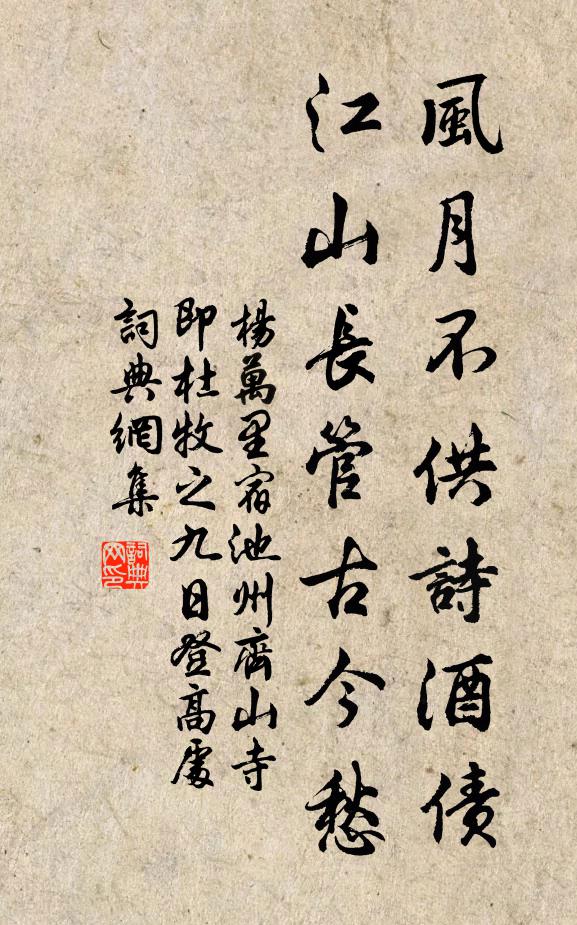 風月不供詩酒債
江山長管古今愁
楊萬里宿池州齊山寺
即杜牧之九日登高處
詞典網集
詞典網印